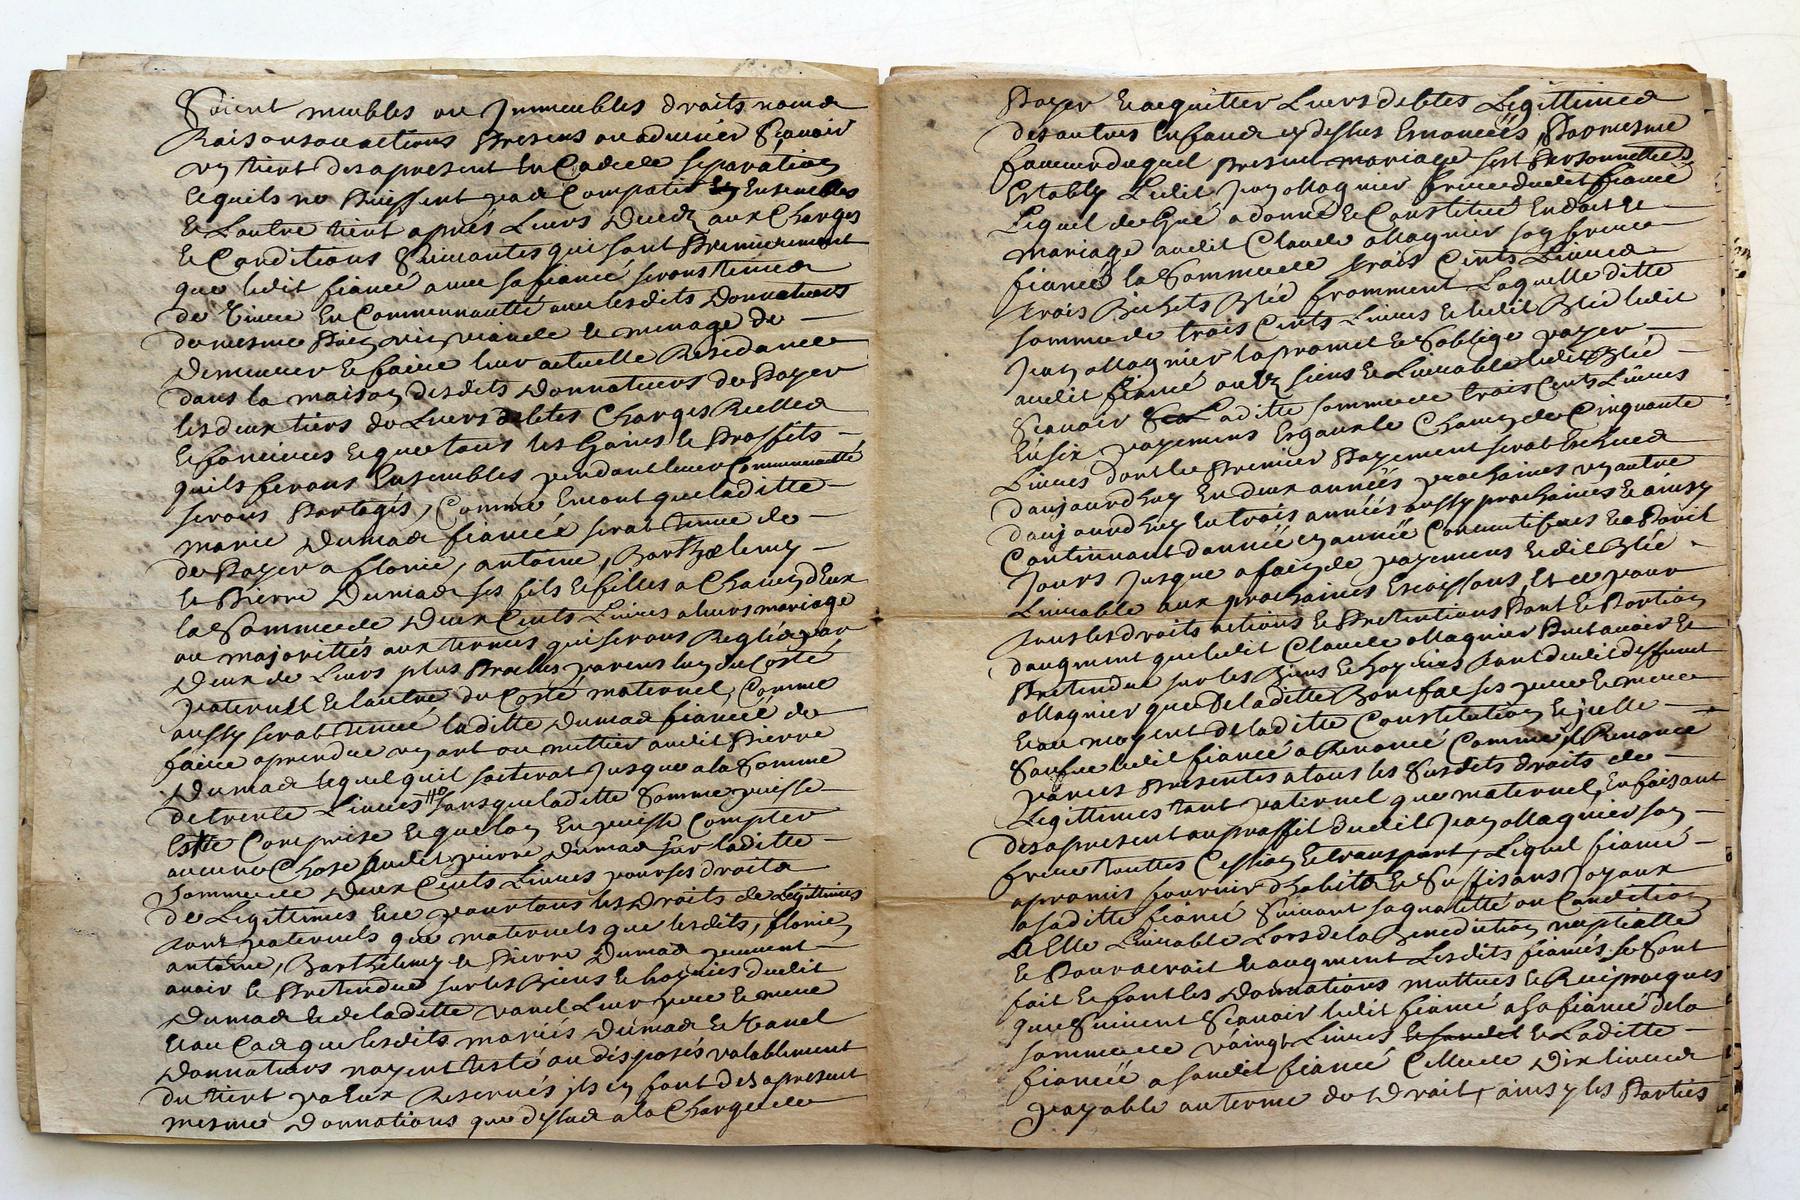 Soient meubles ou Immeubles droits noms
Raisons ou actions Presens ou advenier Scavoir
un tiert des apresent En Cas de separation
Et quils ne Puissent pas Compatir En Ensembles
Et Lautre tiert apres Leurs Deceds aux Charges
Et Conditions Suivantes qui sont Premierement
que ledit fiancé avec sa fiancé serons tenus
de Vivre En Communautté avec lesdits Donnateurs
du mesme Pain vin viande Et menage de
Demeurer Et faire leur actuelle Residance
dans la maison desdits Donnateurs de Payer
les deux tiers de Leurs debtes Charges Reelles
Et foncieres Et que tous les Gains Et Proffits
quils ferons Ensembles pendant leur Communautté
serons Partagés, Comme Emont que laditte
marie Dumas fiancée serat tenue de
de Payer a florie, antoine, Barthelemy
Et Pierre Dumas ses fils Et filles a Chacun d'Eux
la Somme de Deux Cents Livres a leurs mariage
ou majorittés aux termes qui serons Reglés par
Deux de Leurs plus Proches parens lun du Costé
paternel Et lautre du Costé maternel, Comme
aussy serat tenue laditte Dumas fiancée de
faire aprendre un art ou mettier audit Pierre
Dumas lequel quil sorterat Jusque a la Somme
de trente Livres sans que laditte Somme puisse
Estre Comprise Et que lon En puisse Compter
aucune Chose audit pierre Dumas sur laditte
Somme de Deux Cents Livres pour ses droits
de Legitimes Et ce pour tous les Droits de Legitimes
tant paternels que maternels que lesdits, florie,
antoine, Barthelemy Et Pierre Dumas peuvent
avoir Et Pretendre sur les Biens Et hoyries dudit
Dumas Et de laditte vanel Leur pere Et mere
Et au Cas que lesdits mariés Dumas Et vanel
Donnateurs nayent testé ou disposés valablement
du tiert par Eux Reservés ils En font des apresent
mesme Donnations que dessus a la Charge de
Payer Et acquitter Leurs debtes Legittimes
des autres Enfans cy dessus Enoncées, Par mesme
faveur duquel present mariage sest Personnellement
Establÿ Ledit Jean Magnier frere dudit fiancé
Lequel de Gré a donné Et Constitué En dot Et
mariage audit Claude Magnier son frere
fiancé la Somme de trois Cents Livres
trois Bichets Bled fromment Laquelle ditte
somme de trois Cents Livres Et ledit Bled ledit
Jean Magnier la promet Et Soblige payer
audit fiancé ou Es siens Et Livrable ledit Bled
Scavoir Laditte somme de trois Cents Livres
En six payemens Esgaux de Chacun de Cinquante
Livres dont le Premier Payement serat Eschus
daujourdhuy En deux années prochaines un autre
daujourdhuy En trois années aussy prochaines Et ainsy
Continuant dannée En année Consecutifves Et a Pareil
Jours Jusque a fait de payemens Et ledit Bled
Livrable aux prochaines Enoyssons, Et ce pour
tous les droits actions Et Pretentions Part Et Portion
daugment que ledit Claude Magnier Peut avoir Et
Pretendre sur les Biens Et hoyries tant dudit deffunct
Magnier que De laditte Bonefac ses pere Et mere
Et au moyent de laditte Constitution Et jcelle
Sauf ledit fiancé a Renoncé Comme il Renonce
par ces Presentes a tous les Susdits droits de
Legittimes tant paternel que maternel, En faisant
des apresent au proffit dudit Jean Magnier son
frere touttes Cession Et transport, Lequel fiancé
a promis fournir d'habits Et Suffisans Joyaux
a saditte fiancé Suivant sa qualitté ou Condition
delle Livrable Lors de la Benediction nuptialle
Et Pour acroit Et augment Lesdits fiancés se Sont
fait Et font les Donnations muttues Et Reciproques
que Suivent Scavoir ledit fiancé a sa fiancé de la
somme de vaingt Livres Et Laditte
fiancée a sondit fiancé Celle de Dix livres
payable au terme de Droit, ainsy les Parties